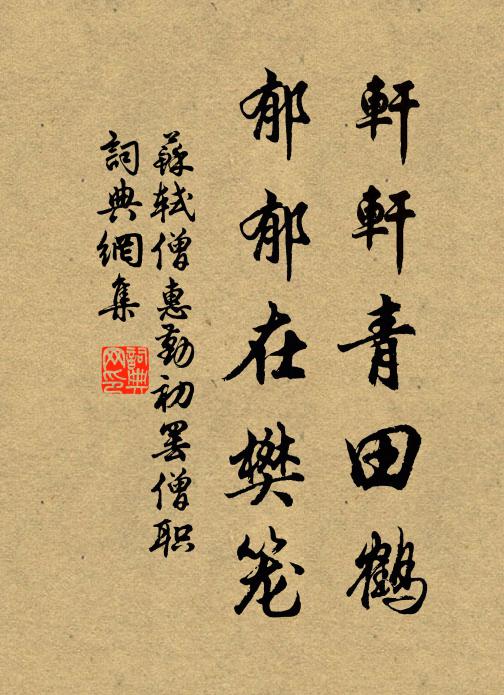 軒軒青田鶴
郁郁在樊笼
蘇軾僧惠勤初罢僧职
詞典網集
詞典网印